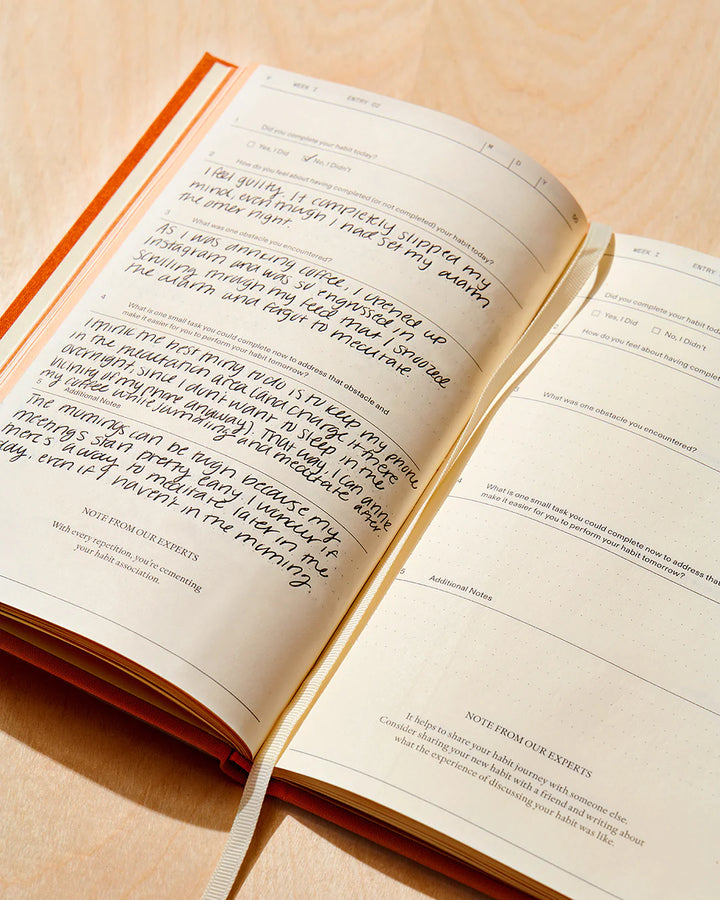 WEEK I ENTRY 02
M D Y
1 Did you complete your habit today?
Yes, I Did ✓ No, I Didn't
2 How do you feel about having completed (or not completed) your habit today?
I feel guilty. It completely slipped my
mind, even though I had set my alarm
the other night.
3 What was one obstacle you encountered?
As I was drinking coffee, I opened up
Instagram and was so engrossed in up
scrolling through my feed that I snoozed
the alarm and forgot to meditate.
4 What is one small task you could complete now to address that obstacle and
make it easier for you to perform your habit tomorrow?
I think the best thing to do is to keep my phone
in the meditation area (and charge it there
overnight, since I don't want to sleep in the
vicinity of my phone anyway). That way I can drink
my coffee while journaling and meditate after.
5 Additional Notes
The mornings can be rough because my
meetings start pretty early. I wonder if
there's a way to meditate later in the
day, even if I haven't in the morning.
NOTE FROM OUR EXPERTS
With every repetition, you're cementing
your habit association.
S
WEEK I ENTRY
Did you complete your habit
Yes, I Did No, I Didn't
How do you feel about having completed
3 What was one obstacle you encountered?
4 What is one small task you could complete now to address that
make it easier for you to perform your habit tomorrow?
5 Additional Notes
NOTE FROM OUR EXPERTS
It helps to share your habit journey with someone else.
Consider sharing your new habit with a friend and writing about
what the experience of discussing your habit was like.